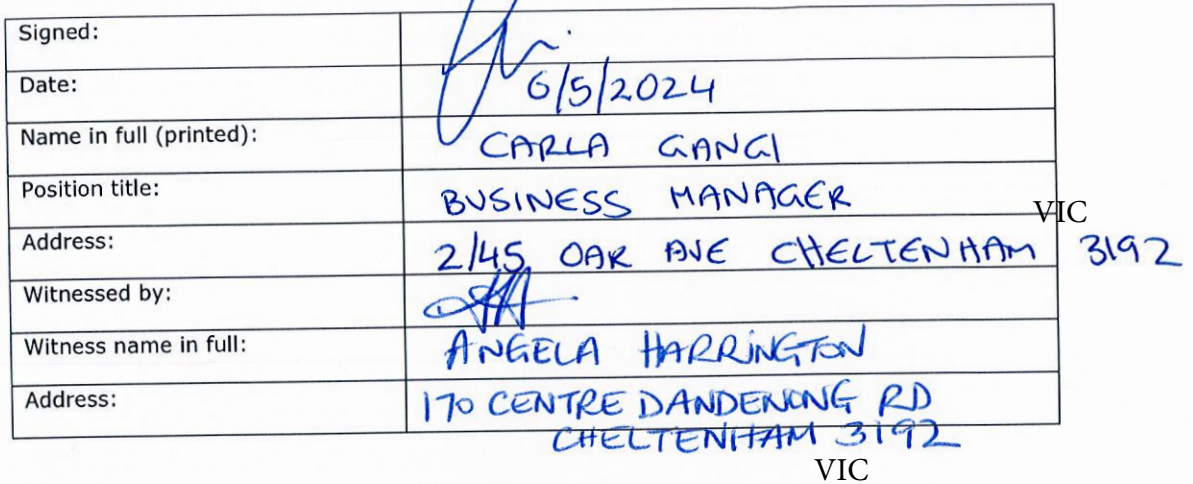 Signed:
Date: 6/5/2024
Name in full (printed): CARLA GANGI
Position title: BUSINESS MANAGER
VIC
Address: 2/45 OAK AVE CHELTENHAM 3192
Witnessed by:
Witness name in full: ANGELA HARRINGTON
Address: 170 CENTRE DANDENONG RD
CHELTENHAM 3192
VIC